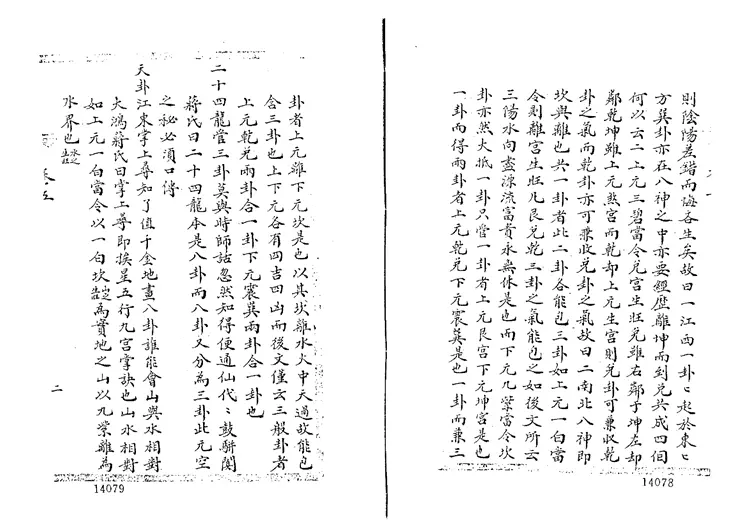 則陰陽差錯而悔吝生矣故曰一江西一卦〻起於東〻
方巽卦亦在八神之中亦要經歷離坤而到兌共成四個
何以云二上元三碧當令兌宮生旺兌雖右鄰于坤左却
鄰乾坤雖上元煞宮而乾却上元生宮則兌卦可兼收乾
卦之氣而乾卦亦可兼收兌卦之氣故曰二南北八神即
坎與離也共一卦者此二卦各能包三卦如上元一白當
令則離宮生旺凡艮兌乾三卦之氣能包之如後文所云
三陽水向盡源流富貴永無休是也而下元九紫當令坎
卦亦然大抵一卦只管一卦者上元艮宮下元坤宮是也
一卦而得兩卦者上元乾兌下元震巽是也一卦而兼三
14078
卦者上元離下元坎是也以其坎離水火中天過故能包
含三卦也上下元各有四吉四凶而後文僅云三般卦者
上元乾兌兩卦合一卦下元震巽兩卦合一卦也
二十四龍管三卦莫與時師話忽然知得便通仙代〻鼓駢闐
蔣氏曰二十四龍本是八卦而八卦又分為三卦此元空
之秘必須口傳
天卦江東掌上尋知了值千金地畫八卦誰能會山與水相對
大鴻蔣氏曰掌上尋即挨星五行九宮掌訣也山水相對
如上元一白當令以一白坎為實地之山以九紫離為
水界也
二
14079